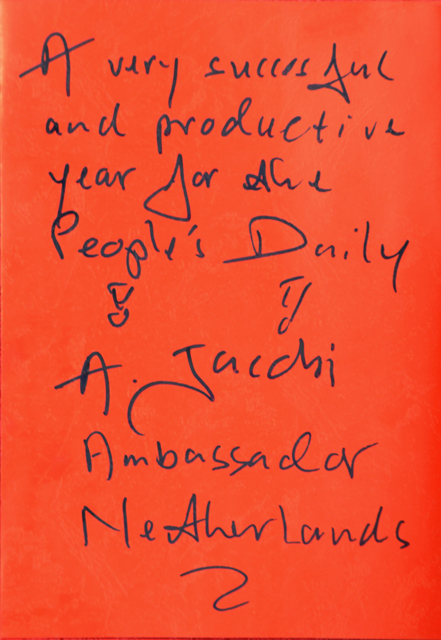 A very successful
and productive
year for the
People's Daily
!! !!
A. Jacobi
Ambassador
Netherlands